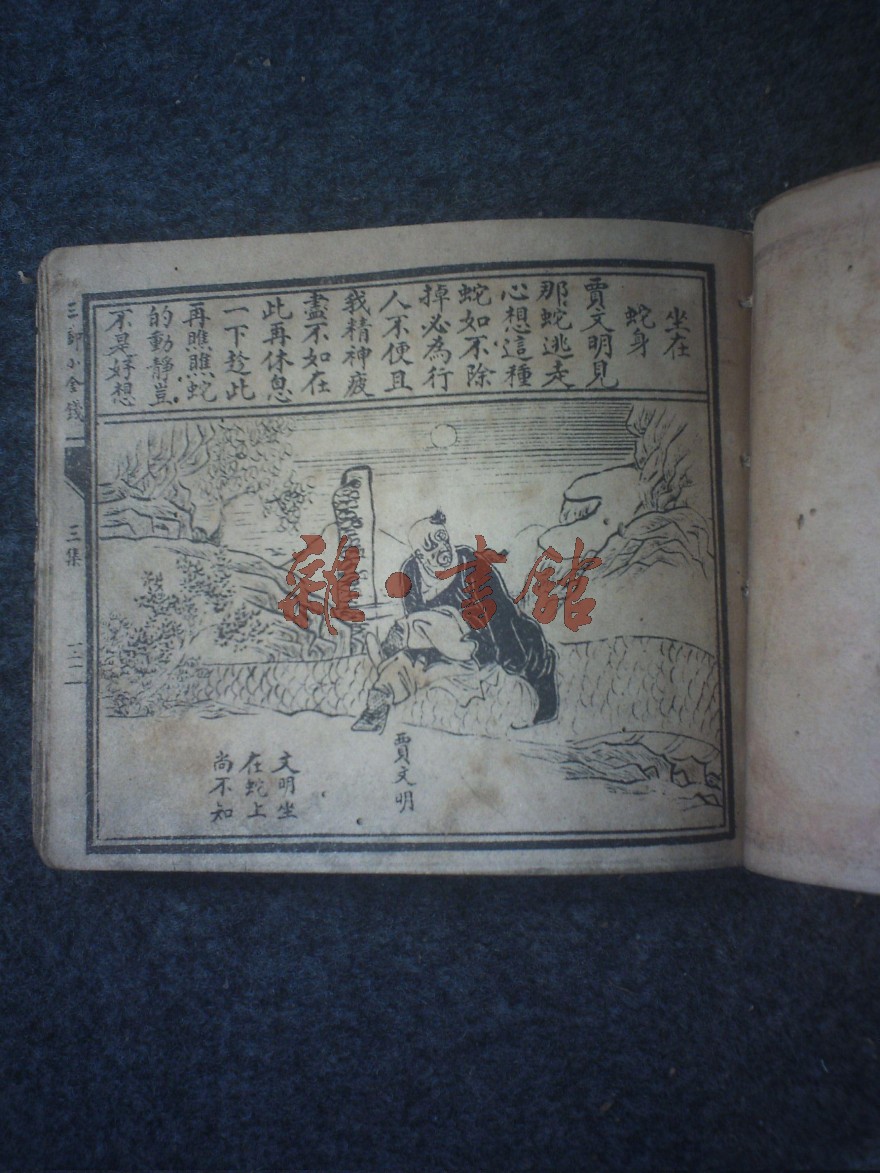 坐在
蛇身
賈文明見
那蛇逃走
心想這種
蛇如不除
掉必為行
人不便且
我精神疲
盡不如在
此再休息
一下趁此
再瞧瞧蛇
的動靜豈
不是好想
賈文明
文明坐
在蛇上
尚不知
三部小金錢
三集
雜·書館